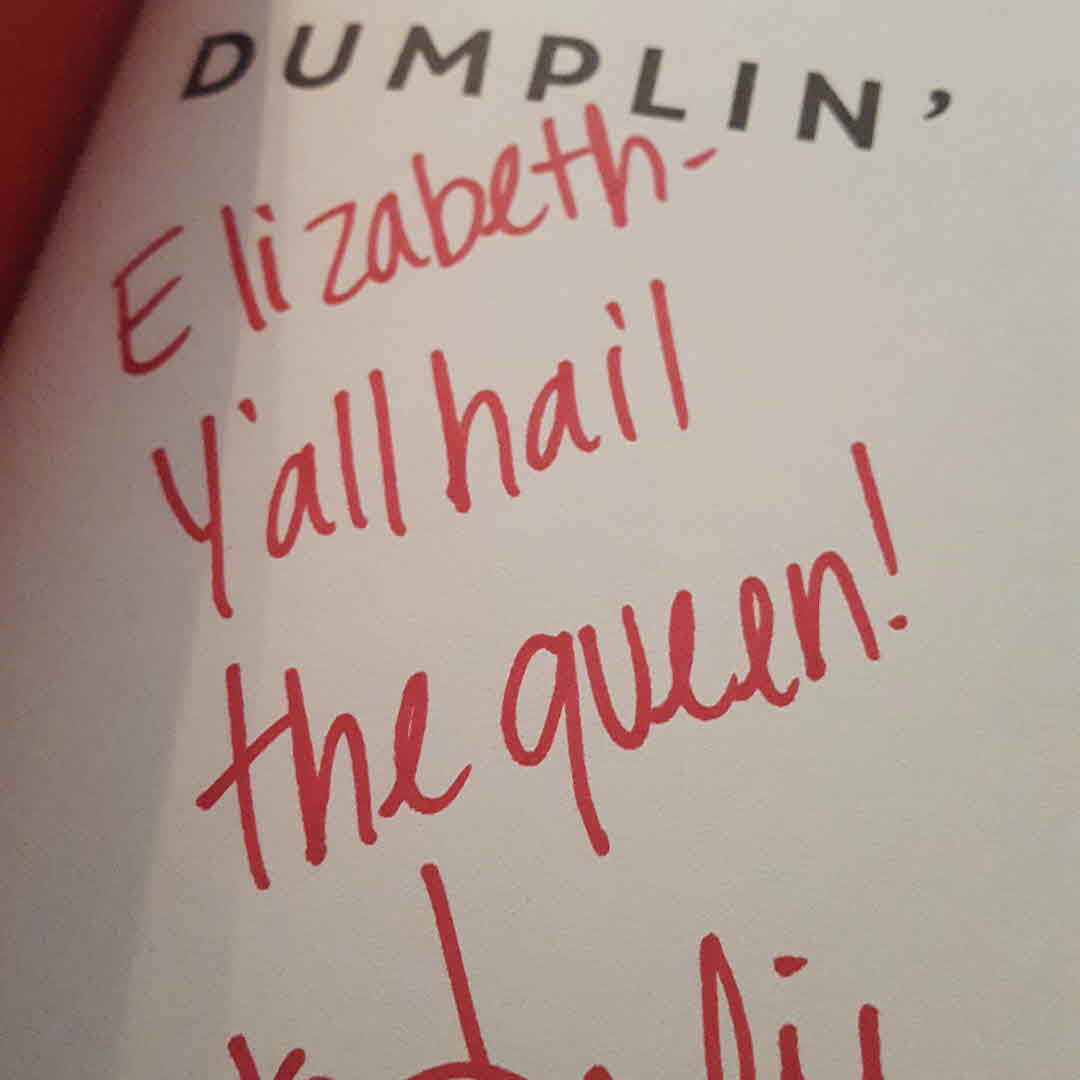 DUMPLIN'
Elizabeth-
Y'all hail
the queen!